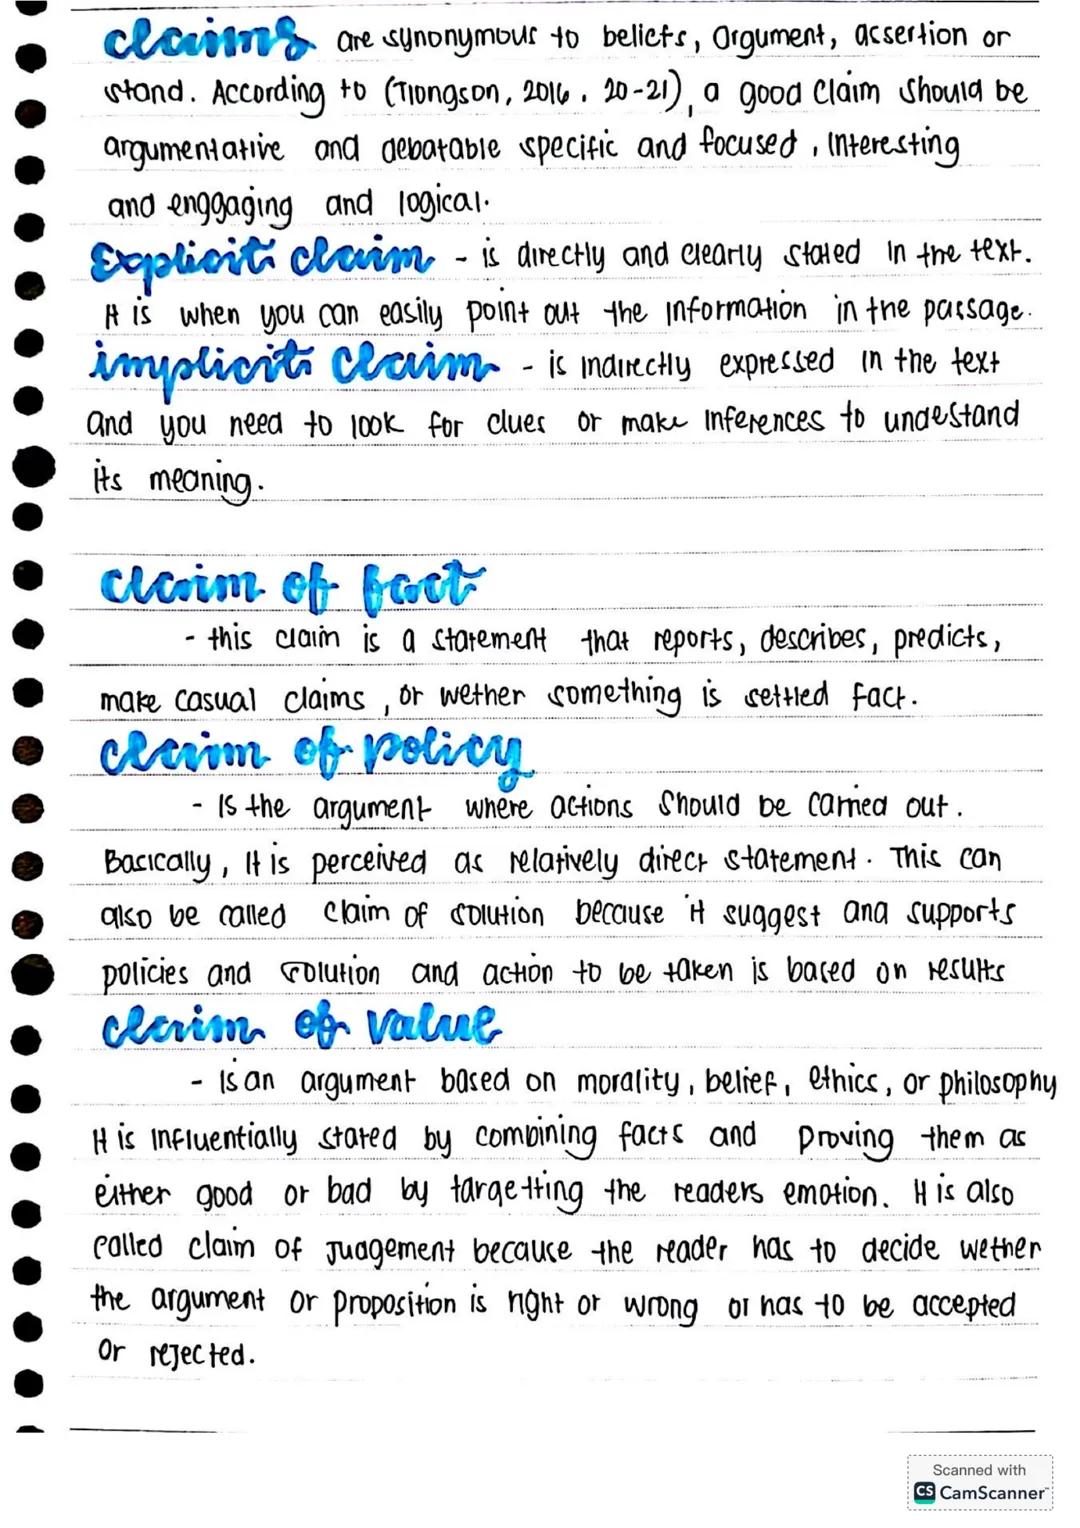 claims are synonymous to beliefs, Argument, assertion or
stand. According to (Tiongson, 2016, 20-21), a good claim should be
argumentative and debatable specific and focused, Interesting
and enggaging and logical.
Explicit claim - is directly and clearly stated in the text.
It is when you can easily point out the information in the passage.
implicit claim - is indirectly expressed in the text
and you need to look for clues or make inferences to undestand
its meaning.
claim of fact
- this claim is a statement that reports, describes, predicts,
make casual claims, or wether something is settled fact.
claim of policy
- Is the argument where actions should be carried out.
Basically, it is perceived as relatively direct statement. This can
also be called claim of solution because it suggest and supports
policies and solution and action to be taken is based on results
claim of value
- is an argument based on morality, belief, ethics, or philosophy
It is influentially stated by combining facts and proving them as
either good or bad by targetting the readers emotion. It is also
called claim of judgement because the reader has to decide wether
the argument or proposition is right or wrong or has to be accepted
or rejected.
Scanned with
CS CamScanner